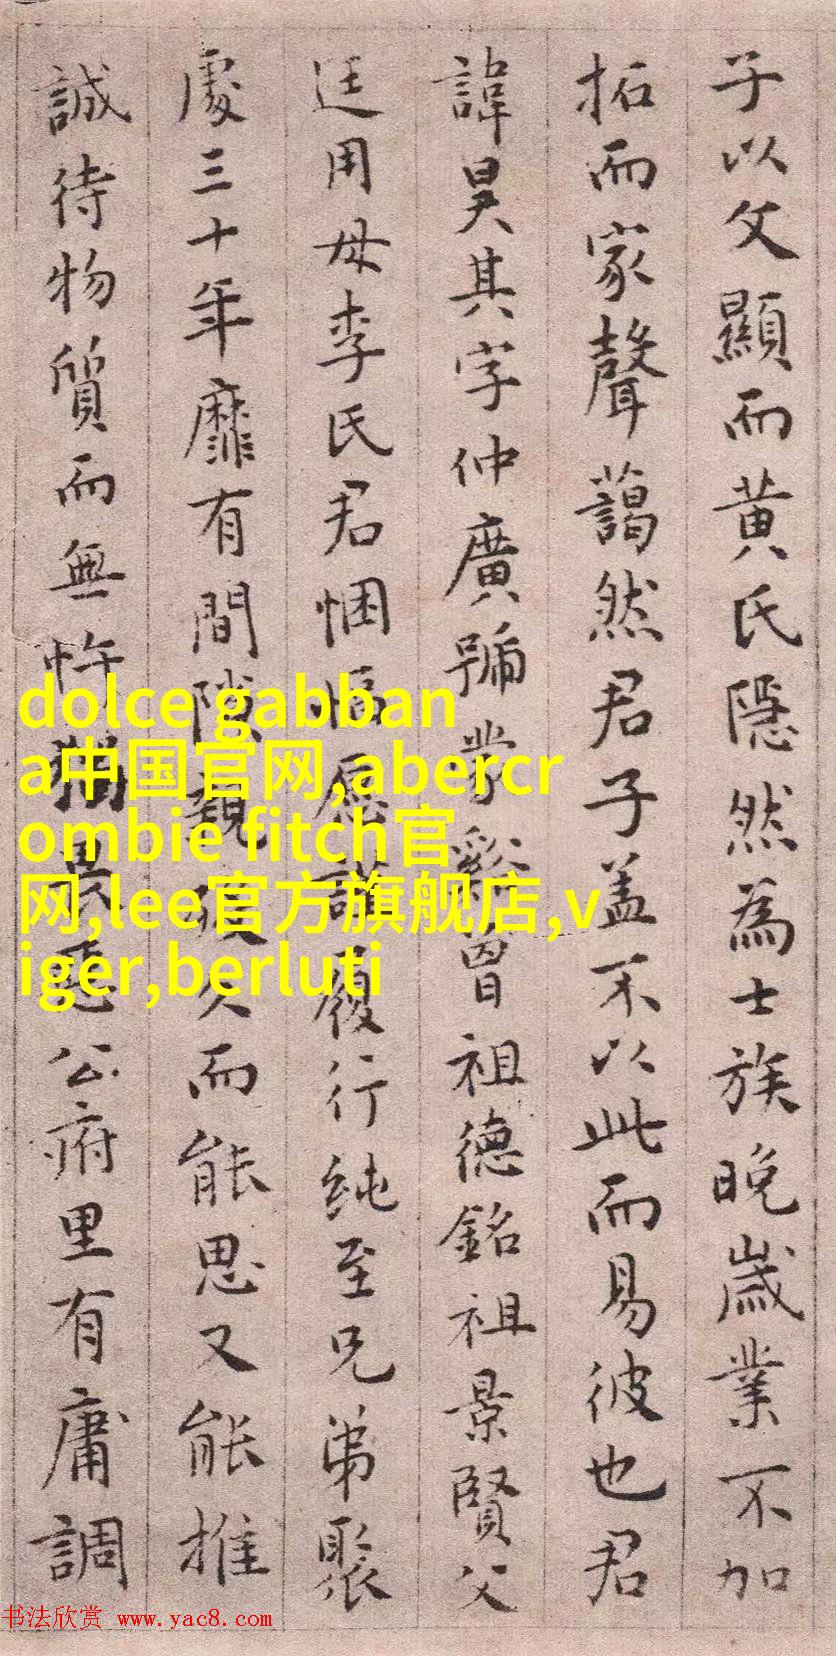 子以父顯而黄氏隱然為士族晚歲業不加
拓而家聲藹然君子盖不以此而易彼也君
諱昊其字仲廣號蒙谿曾祖德銘祖景賢父
廷用母李氏君悃愊愿謹履行純至兄弟聚
處三十年靡有間隙親没久而能思又能推
誠待物質而無忤猶畏公府里有庸調
dolce gabban
a中国官网,abercr
ombie fitch官
网,lee官方旗舰店,v
iger,berluti
书法欣赏 www.yac8.com